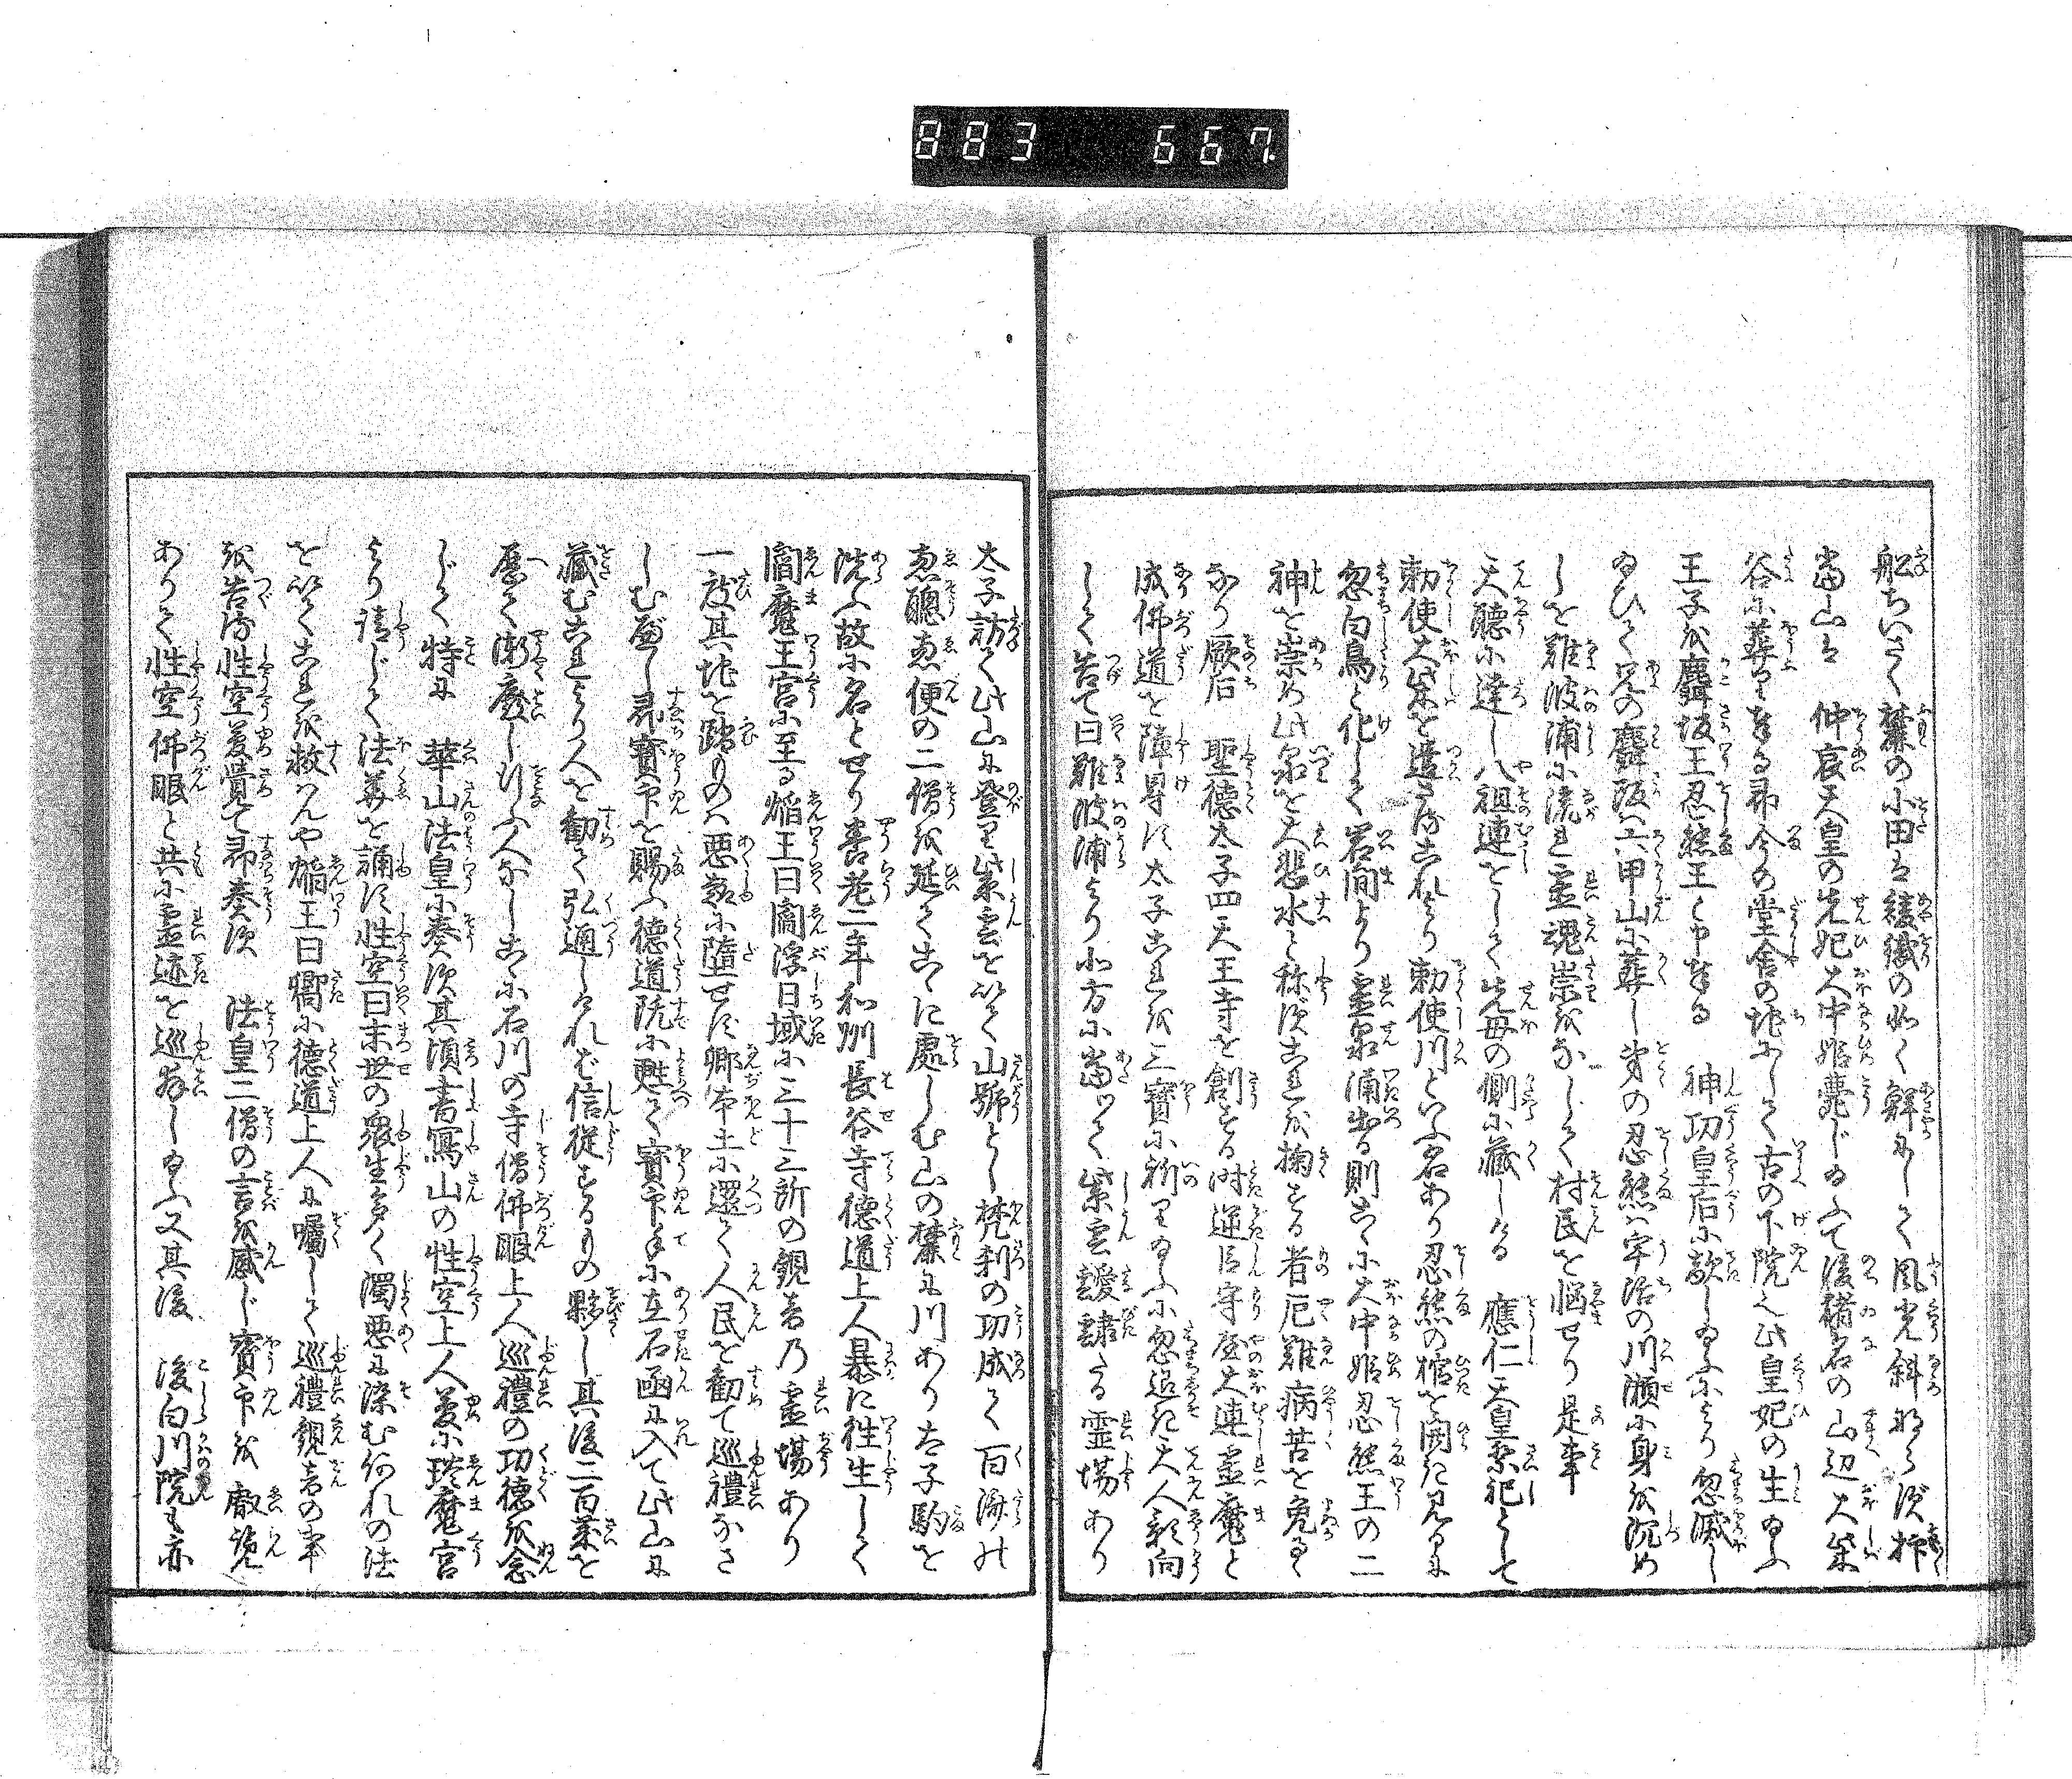 883 667
船ちいさく麓の小田は綾織の如く鮮にして風光斜ならず抑
当山は 仲哀天皇の先妃大中姫薨じ給ふて後猪名の山辺大柴
谷に葬り奉る即今の堂舎の地にして古の下院也此皇妃の生給ふ
王子を麛坂王忍熊王と申奉る 神功皇后に敵し給ふにより忽滅し
給ひて兄の麛坂は六甲山に葬し弟の忍熊は宇治の川瀬に身を沈め
しを難波浦に流れ霊魂祟をなして村民を悩せり是事
天聴に達し八祖連をして先母の側に蔵しける 應仁天皇祭祀として
勅使大柴を遣さるこれより勅使川といふ名あり忍熊の棺を開き見るに
忽白鳥と化して岩間より霊泉涌出る則こゝに大中姫忍熊王の二
神を崇め此泉を大悲水と称ずこれを掬する者厄難病苦を免るゝ
なり厥后 聖徳太子四天王寺を創する時逆臣守屋大連霊魔と
成佛道を障㝵す太子これを三寶に祈り給ふに忽近き大人影向
して告て曰難波浦より北方に當つて紫雲靉靆たる霊場あり
太子訪て此山に登り紫雲を以て山號とし梵刹の功成て百済の
恵聰恵便の二僧を延てこゝに處しむ山の麓に川あり太子駒を
洗ふ故に名とせり養老二年和州長谷寺徳道上人暴に往生して
閻魔王宮に至る焔王曰閻浮日域に三十三所の観音乃霊場あり
一度其地を踏ものは悪趣に墮せず卿本土に還て人民を勧て巡禮なさ
しむべし即寶印を賜ふ徳道既に甦て寶印手に在石函に入て此山に
蔵むこれより人を勧て弘通しけれど信従するもの夥し其後二百葉を
歴て漸廢し行ふ人なしこゝに石川の寺僧佛眼上人巡禮の功徳を念
じて特に 華山法皇に奏す其頃書寫山の性空上人夢に琰魔宮
より請じて法華を誦す性空曰末世の衆生多く濁悪に染む何れの法
を以てこれを救はんや焔王曰嚮に徳道上人に囑して巡禮観音の事
を告る性空夢覚て即奏す 法皇二僧の言を感じ寶印を叡覧
ありて性空佛眼と共に霊迹を巡拝し給ふ又其後 後白川院も亦